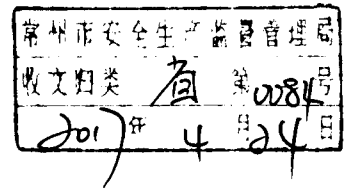 常州市安全生产监督管理局
收文归类 省 第0084号
2017年4月24日